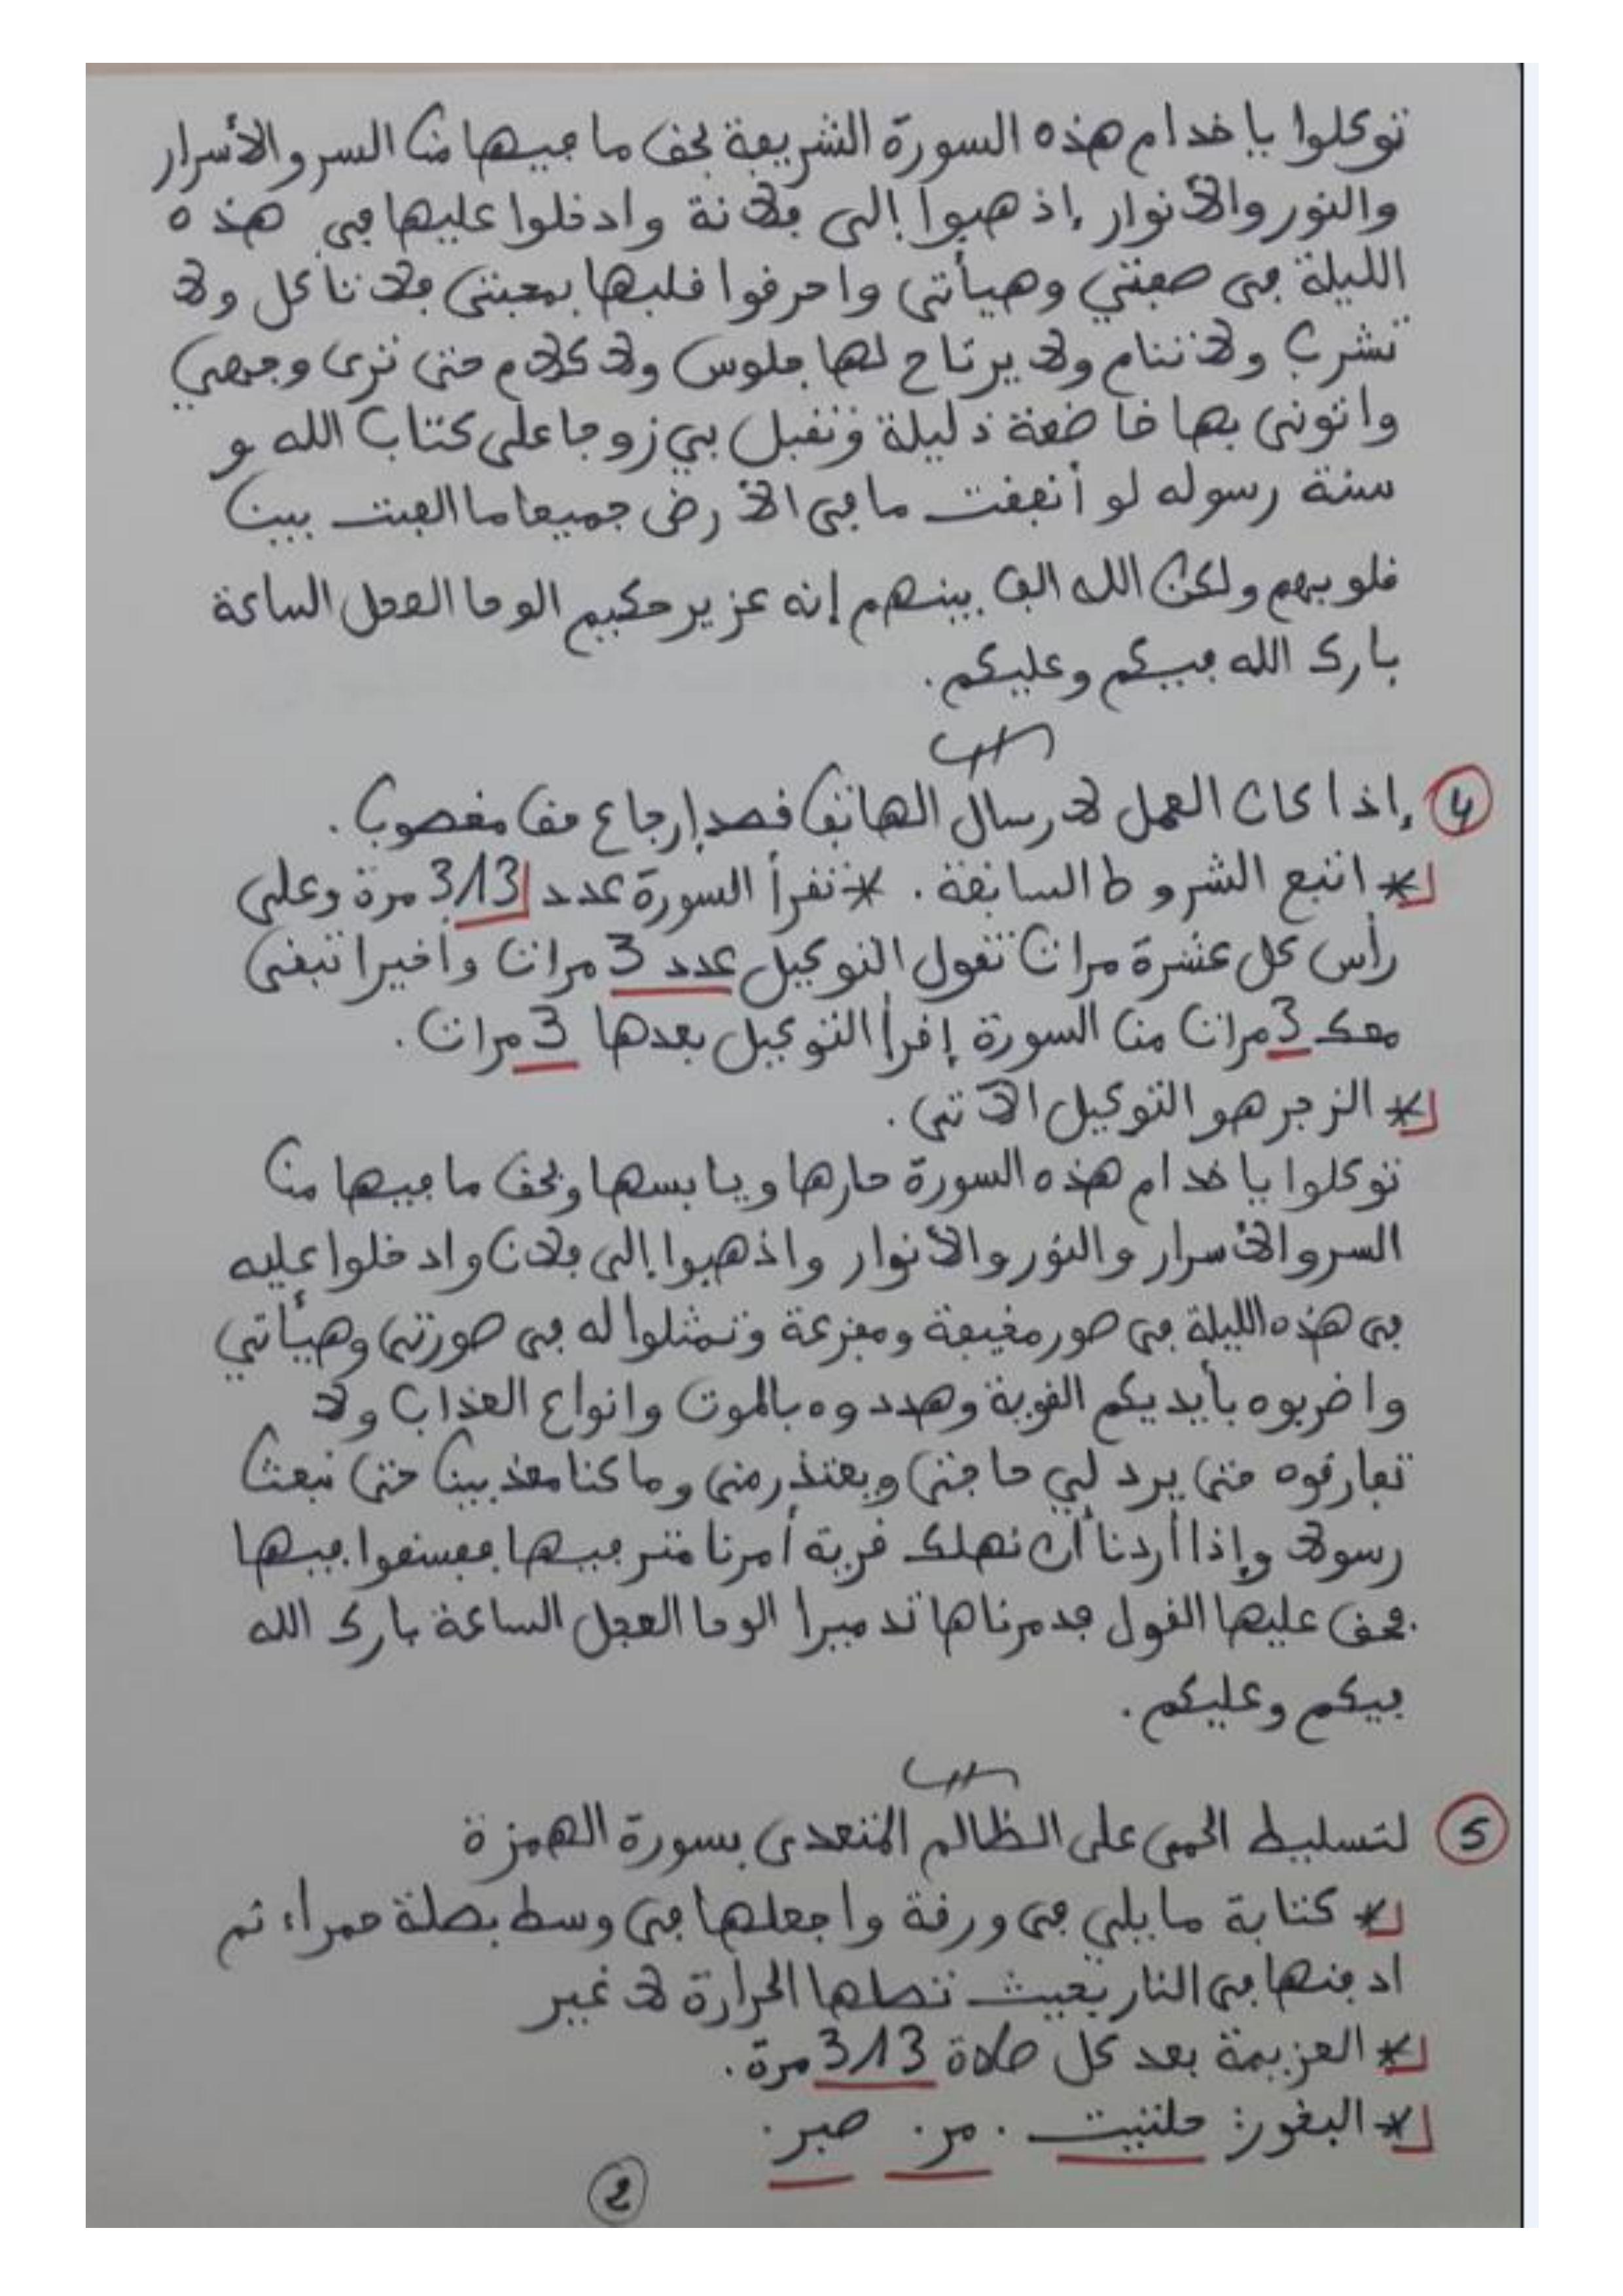 توكلوا يا خدام هذه السورة الشريفة بحق ما فيها من السر والأسرار
والنور والأنوار إذهبوا إلى فلانة وادخلوا عليها في هذه
الليلة في صفتي وهيأتي واحرقوا قلبها بمحبتي فلا تأكل ولا
تشرب ولا تنام ولا يرتاح لها جلوس ولا كلام حتى ترى وجهي
واتوني بها خاضعة ذليلة وتقبل بي زوجا على كتاب الله و
سنة رسوله لو أنفقت ما في الأرض جميعا ما الفت بين
قلوبهم ولكن الله الف بينهم إنه عزيز حكيم الوحا العجل الساعة
بارك الله فيكم وعليكم.
④ إذا كان العمل لارسال الهاتف قصد إرجاع حق مغصوب.
* اتبع الشروط السابقة. * تقرأ السورة عدد 313 مرة وعلى
رأس كل عشرة مرات تقول التوكيل عدد 3 مرات وأخيرا تبقى
معك 3 مرات من السورة إقرأ التوكيل بعدها 3 مرات.
* الزجر هو التوكيل الآتي.
توكلوا يا خدام هذه السورة حارها ويابسها وبحق ما فيها من
السر والأسرار والنور والأنوار واذهبوا إلى فلان وادخلوا عليه
في هذه الليلة في صور مخيفة ومفزعة وتمثلوا له في صورتي وهيأتي
واضربوه بأيديكم القوية وهددوه بالموت وانواع العذاب ولا
تفارقوه حتى يرد لي حاجتي ويعتذر مني وما كنا معذبين حتى نبعث
رسولا وإذا أردنا أن نهلك قرية أمرنا مترفيها ففسقوا فيها
فحق عليها القول فدمرناها تدميرا الوحا العجل الساعة بارك الله
فيكم وعليكم.
⑤ لتسليط الحمى على الظالم المتعدي بسورة الهمزة
* كتابة ما يلي في ورقة واجعلها في وسط بصلة حمراء ثم
ادفنها في النار بحيث تصلها الحرارة لا غير
* العزيمة بعد كل صلاة 313 مرة.
* البخور: حلتيت. مر. صبر.
②